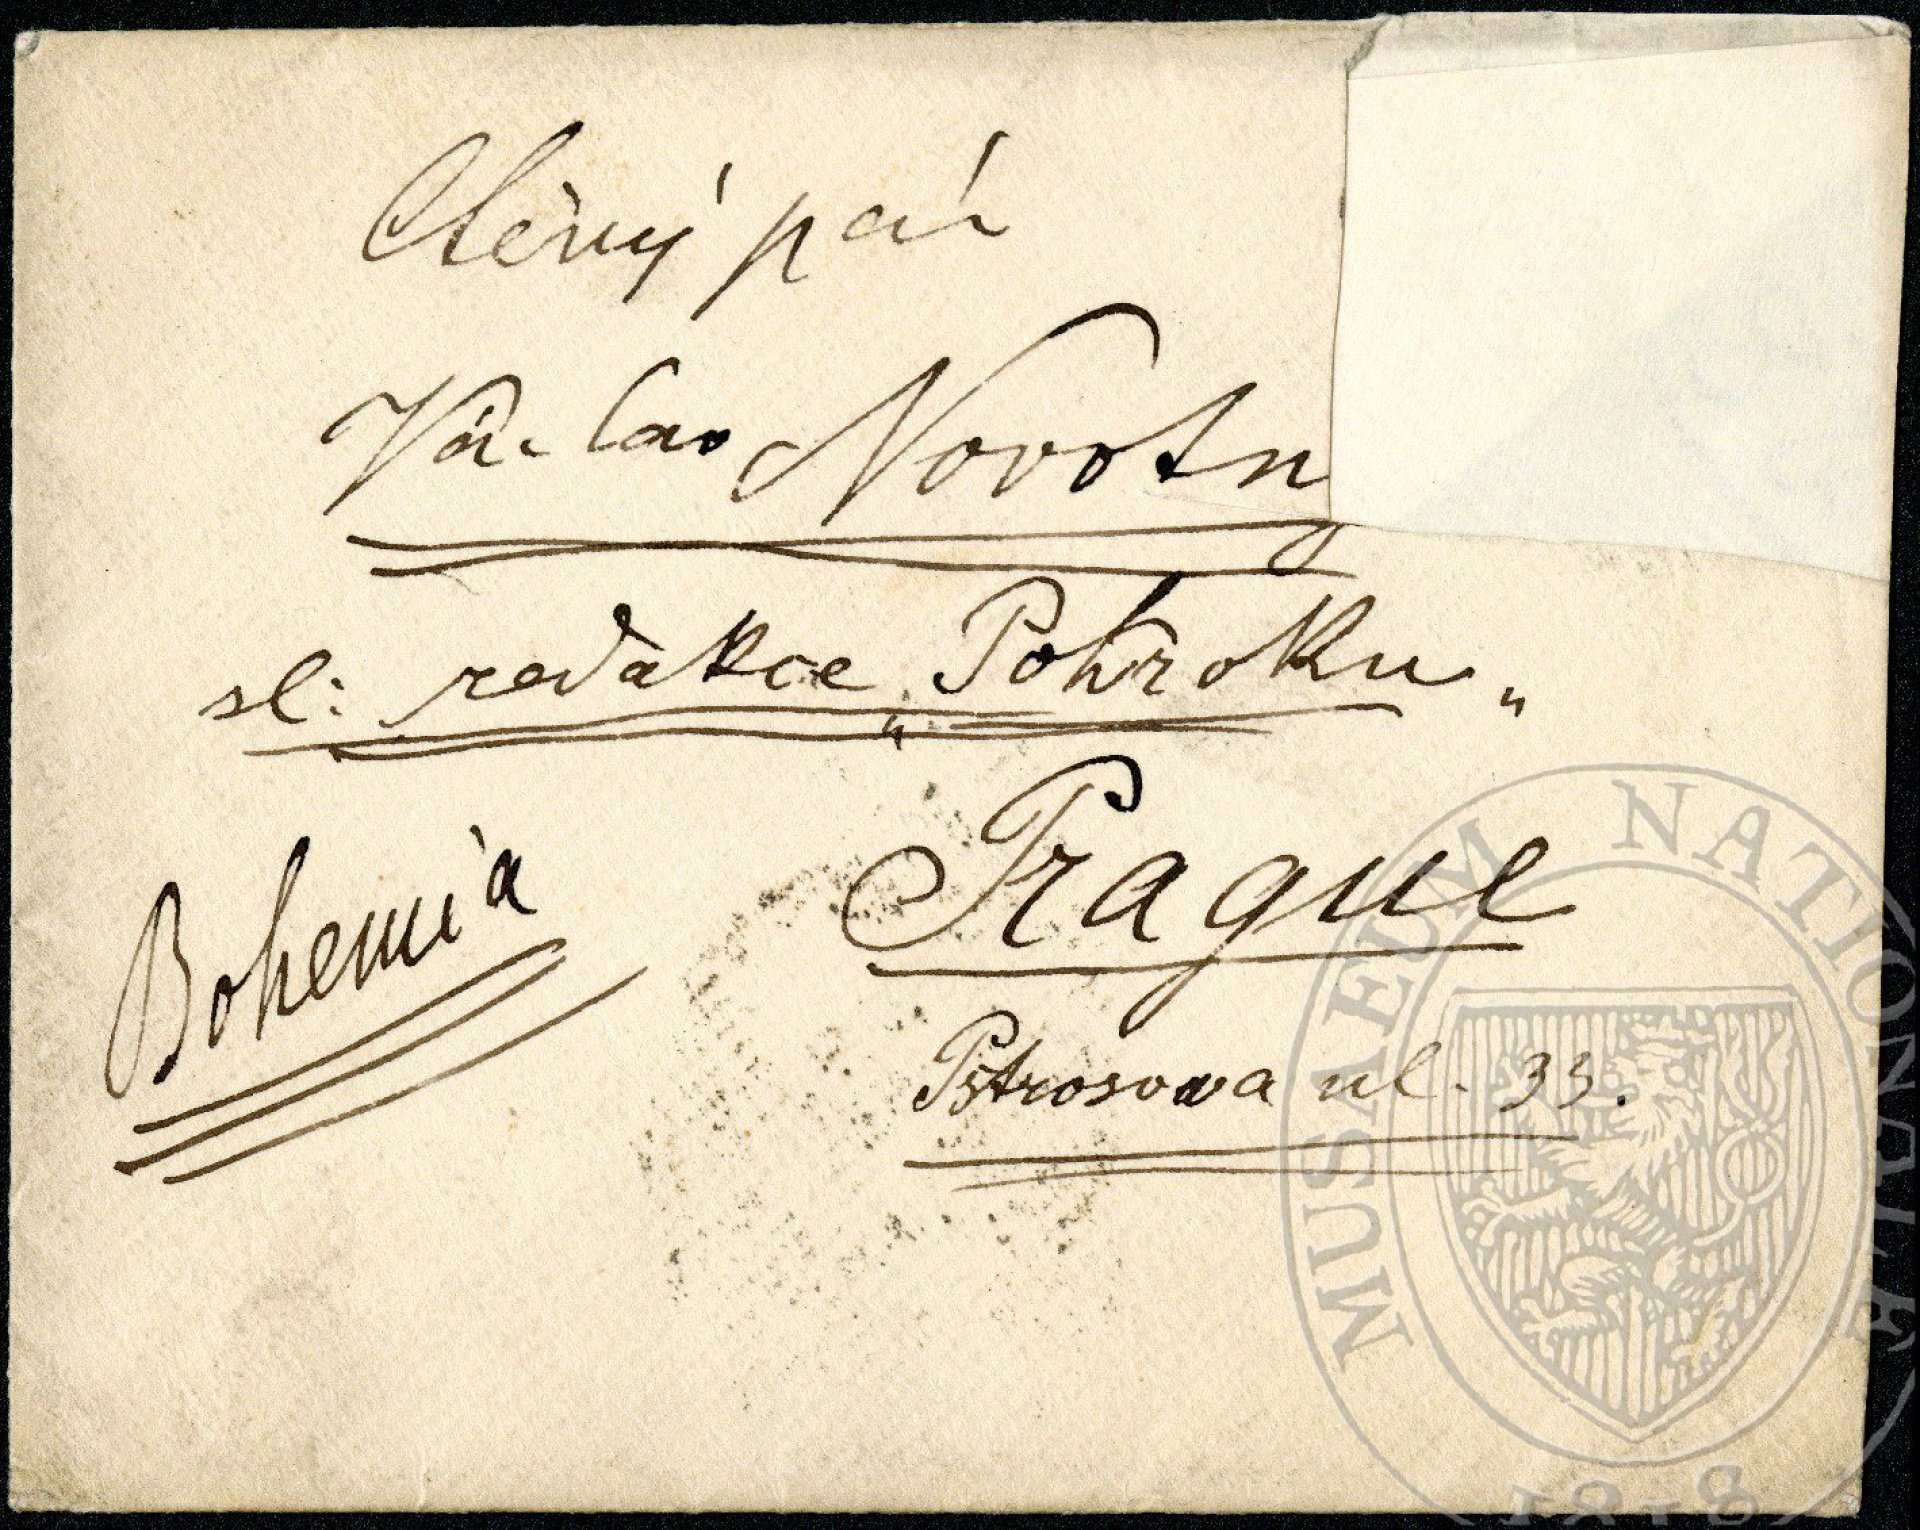 Ctěný pán
Václav Novotny
sl: redakce „Pokroku„
Prague
Bohemia
Pstrosova ul. 33.
MUSAEUM NATIONALE
1818